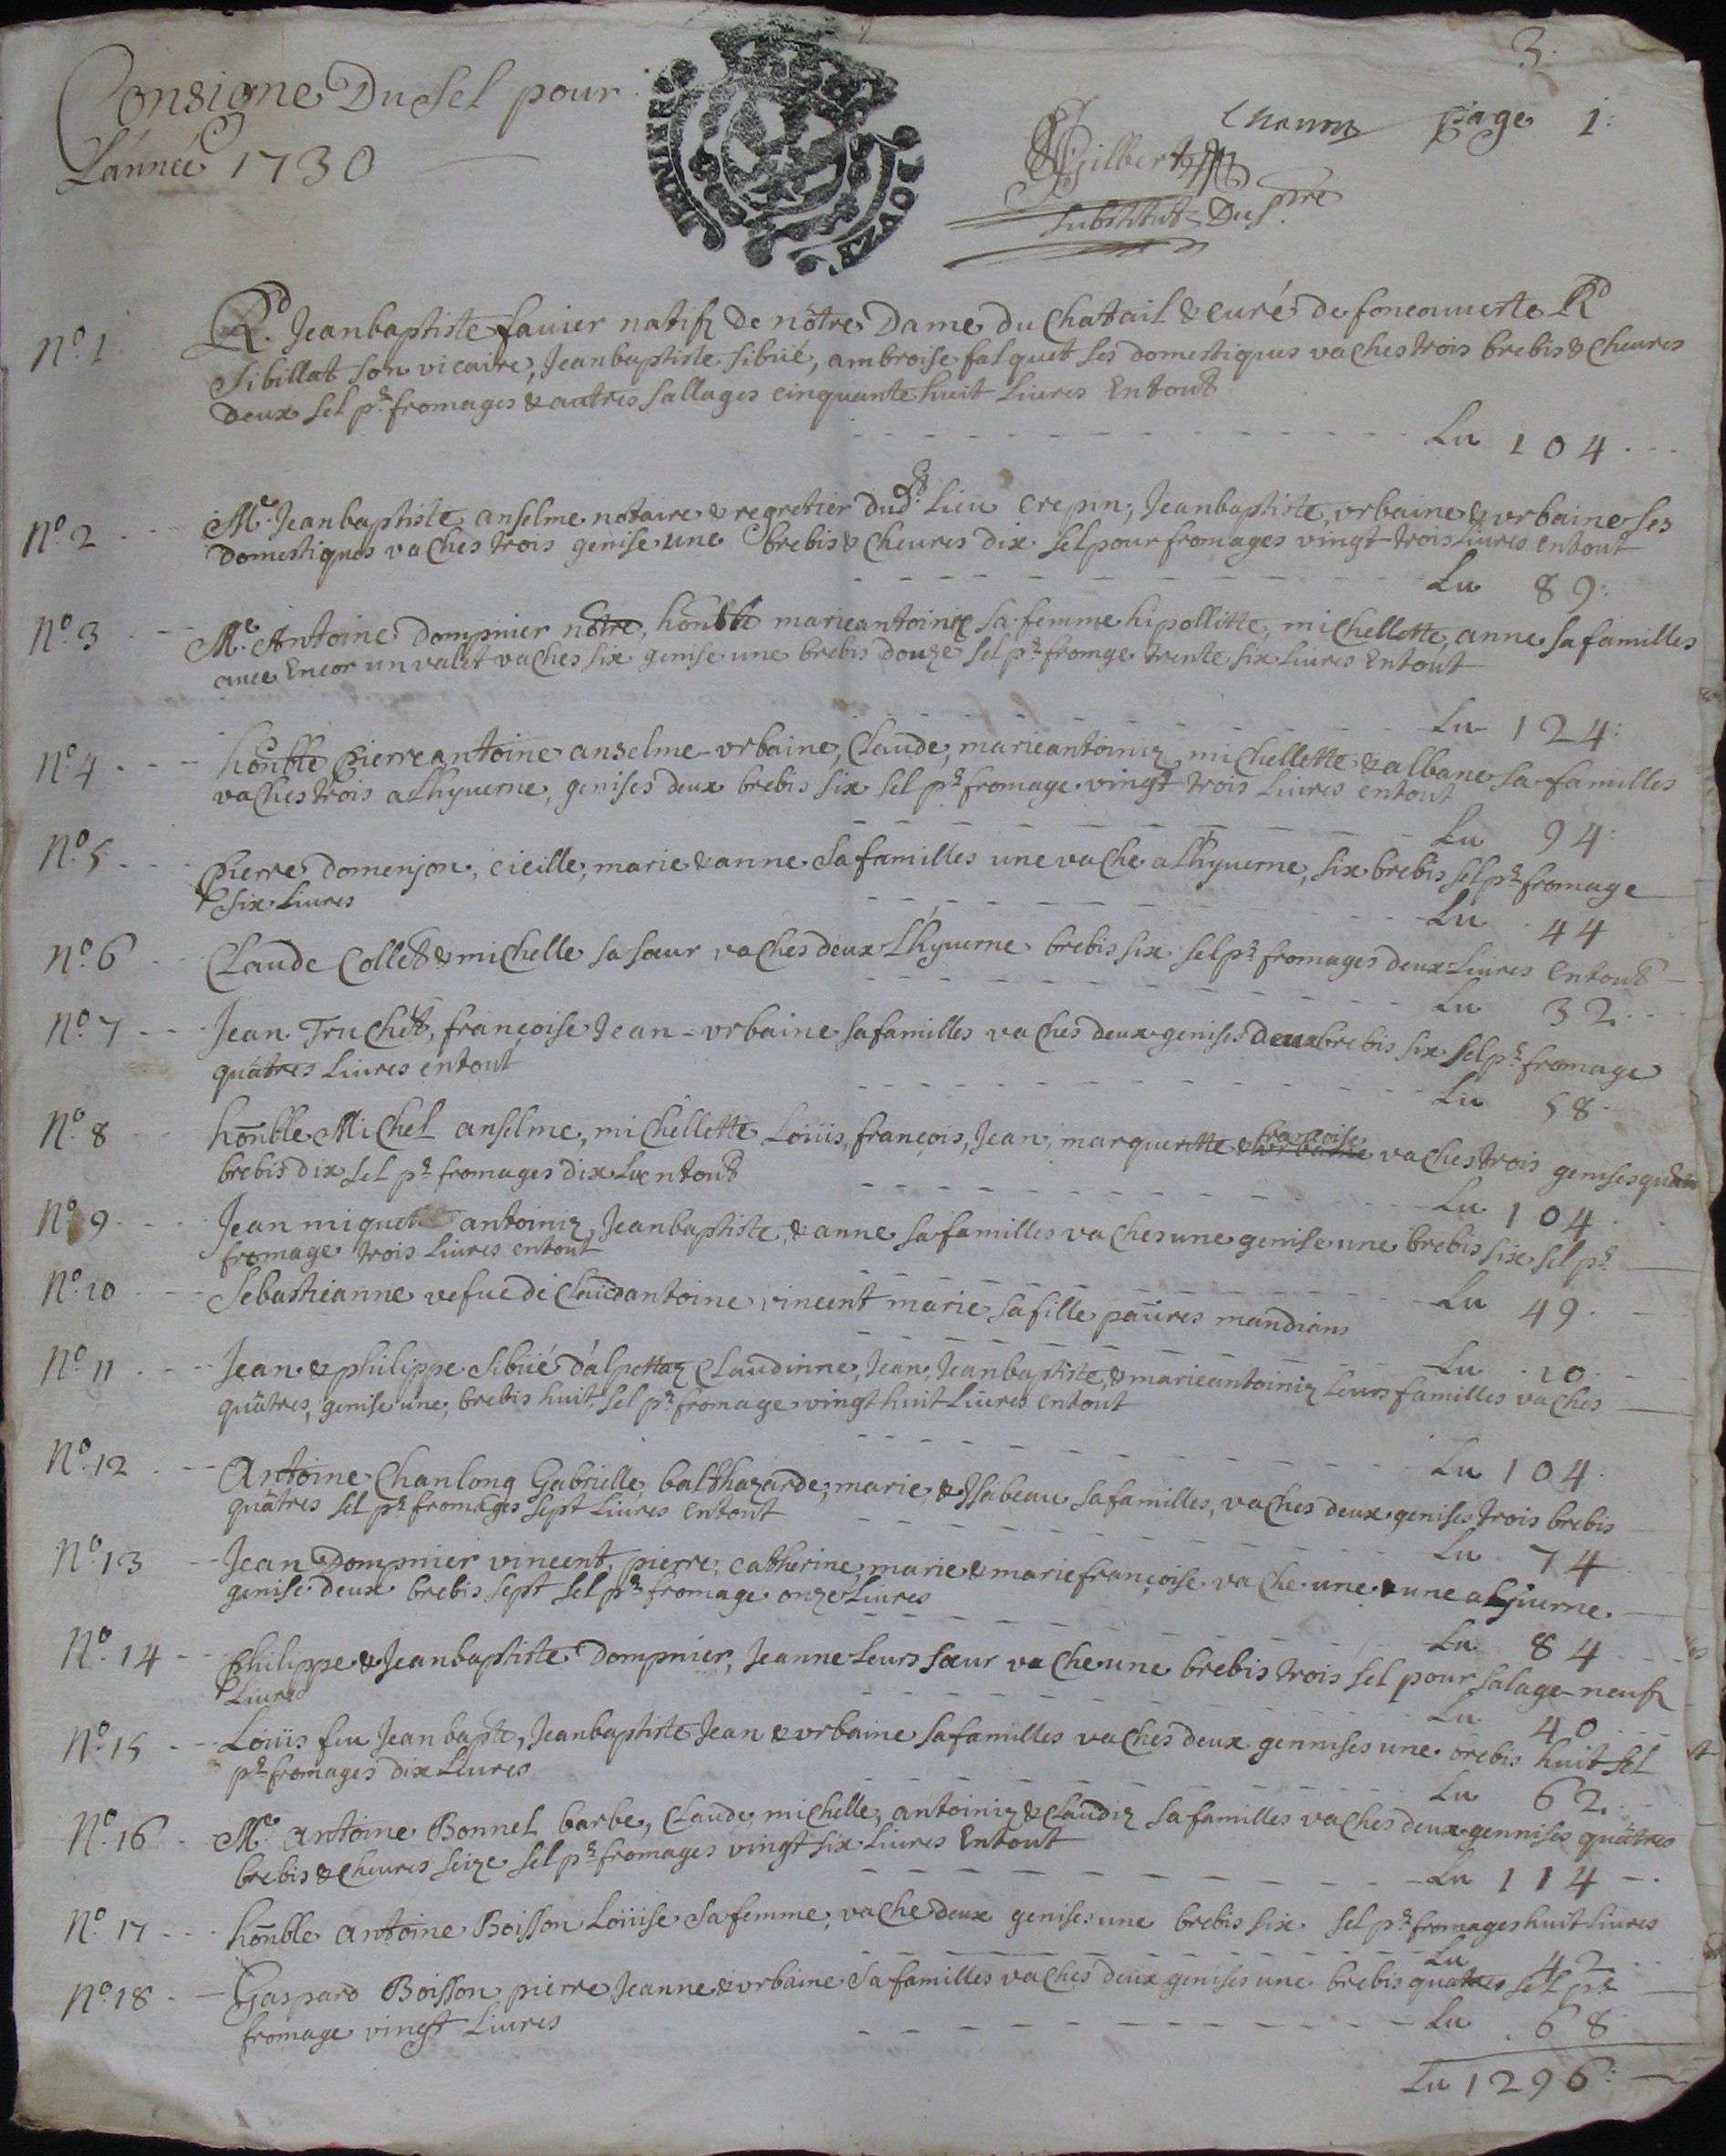 3.
Consigne Du Sel pour
L'année 1730
page 1:
Gilbert
substitut Du
N.º 1 R.d Jeanbaptiste fauier natif de nôtre Dame du Chatail & curé de foncouuerte R.d
Sibillat son vicaire, Jeanbaptiste sibüé, ambroise falquet ses domestiques vaches trois brebis & cheures
deux sel p.r fromages & autres sallages cinquante huit Liures Entout
Lu 104
N.º 2 M.e Jeanbaptiste anselme notaire & regretier dud.t Lieu crepin, Jeanbaptiste, vrbaine & vrbaine ses
domestiques vaches trois genise une brebis & cheures dix sel pour fromages vingt trois Liures entout
Lu 89:
N.º 3 M.e Antoine Dompnier no.tre, hon.ble marieantoinie sa femme hipollitte, michellette, anne sa familles
auec Encor un valet vaches six genise une brebis douze sel p.r fromge trente six Liures Entout
Lu 124:
N.º 4 hon.ble pierreantoine anselme vrbaine, Claude, marieantoiniz michellette & albane sa familles
vaches trois a Lhyuerne, genises deux brebis six sel p.r fromage vingt trois Liures entout
Lu 94:
N.º 5 pierre domenjon, cicille, marie & anne sa familles une vache a Lhyuerne, six brebis sel p.r fromage
six Liures
Lu 44
N.º 6 Claude Collet & michelle sa sœur vaches deux Lhyuerne brebis six sel p.r fromages deux Liures Entout
Lu 32
N.º 7 Jean Truchet, françoise Jean vrbaine sa familles vaches deux genises deux brebis six sel p.r fromage
quâtres Liures entout
Lu 58
N.º 8 hon.ble Michel anselme, michellette Loüis, françois, Jean, marqueritte & françoise vaches trois genises
brebis dix sel p.r fromages dix L. entout
Lu 104
N.º 9 Jean miquet antoiniz, Jeanbaptiste, & anne sa familles vaches une genise une brebis six sel p.r
fromage trois Liures entout
Lu 49
N.º 10 Sebastianne vefue de Claudantoine vincent marie sa fille paüures mandians
Lu 10
N.º 11 Jean & philippe sibüé d'alpettaz Claudinne, Jean, Jeanbaptiste, & marieantoiniz Leurs familles vaches
quâtres, genise une, brebis huit, sel p.r fromage vingt huit Liures entout
Lu 104
N.º 12 Antoine Chanlong Gabrielle, balthazarde, marie, & Ysabeau sa familles, vaches deux genises trois brebis
quâtres sel p.r fromages sept Liures entout
Lu 74
N.º 13 Jean Dompnier vincent, pierre, catherine, marie & mariefrançoise vache une & une a Lyuerne
genise deux brebis sept sel p.r fromage onze Liures
Lu 84
N.º 14 philippe & Jeanbaptiste Dompnier, Jeanne Leurs sœur vache une brebis trois sel pour salage neuf
Liures
Lu 40
N.º 15 Loüis feu Jean bapte, Jeanbaptiste Jean & vrbaine sa familles vaches deux gennises une brebis huit sel
p.r fromages dix Liures
Lu 62
N.º 16 M.e Antoine Bonnel barbe, Claude, michelle, antoiniz & Claudiz sa familles vaches deux gennises quâtres
brebis & cheures seize sel p.r fromages vingt six Liures Entout
Lu 114
N.º 17 hon.ble Antoine Boisson Loüise sa femme, vache deux genises une brebis six sel p.r fromages huit Liures
Lu 42
N.º 18 Gaspard Boisson pierre Jeanne & vrbaine sa familles vaches deux genises une brebis quatres sel p.r
fromage vingt Liures
Lu 68
Lu 1296: